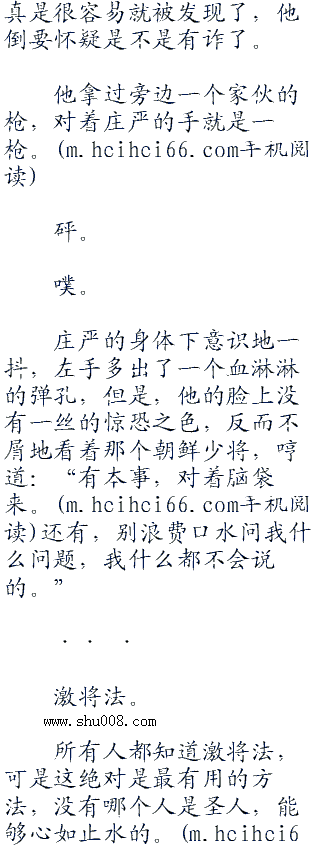 真是很容易就被发现了，他
倒要怀疑是不是有诈了。
他拿过旁边一个家伙的
枪，对着庄严的手就是一
枪。(m.hcihci66.com手机阅
读)
砰。
噗。
庄严的身体下意识地一
抖，左手多出了一个血淋淋
的弹孔，但是，他的脸上没
有一丝的惊恐之色，反而不
屑地看着那个朝鲜少将，哼
道：“有本事，对着脑袋
来。(m.hcihci66.com手机阅
读)还有，别浪费口水问我什
么问题，我什么都不会说
的。”
. . .
激将法。
www.shu008.com
所有人都知道激将法，
可是这绝对是最有用的方
法，没有哪个人是圣人，能
够心如止水的。(m.hcihci6